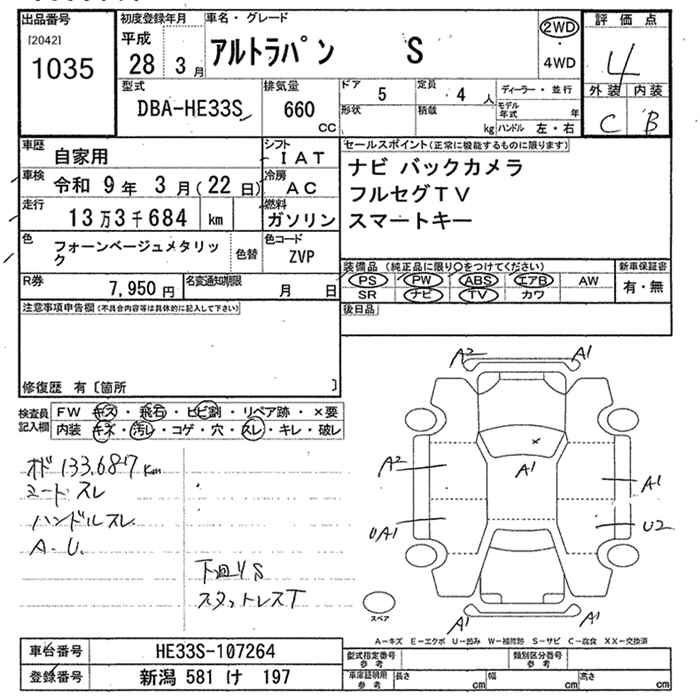 出品番号 初度登録年月 車名・グレード 2WD 評価点
[2042] 平成 アルトラパン S 4WD 4
1035 28 3月 外装 内装
型式 排気量 ドア 5 定員 4人 ディーラー・並行 C B
DBA-HE33S 660 cc 形状 積載 kg モデル年式 年
ハンドル 左・右
車歴 自家用 シフト IAT セールスポイント(正常に機能するものに限ります)
車検 令和 9年 3月(22日) 冷房 AC ナビ バックカメラ
走行 13万3千684 km 燃料 ガソリン フルセグTV
スマートキー
色 フォーンベージュメタリック 色替 色コード ZVP
装備品(純正品に限り○をつけてください) 新車保証書
R券 7,950円 名変通知期限 月 日 PS PW ABS エアB AW 有・無
SR ナビ TV カワ
注意事項申告欄(不具合内容等は具体的に記入して下さい) 後日品
修復歴 有〔箇所 〕
検査員記入欄 FW キズ・飛石・ヒビ割・リペア跡・×要
内装 キズ・汚レ・コゲ・穴・スレ・キレ・破レ
A2 A1
A1
A2 A1
UA1 U2
A1 A1
オド 133,687km
シートスレ
ハンドルスレ
A.U.
下廻りS
スタットレスT
スペア
A-キズ E-エクボ U-凹み W-補修跡 S-サビ C-腐食 XX-交換済
車台番号 HE33S-107264 型式指定番号 参考 類別区分番号 参考
登録番号 新潟 581 け 197 車庫証明用 参考 長さ cm 幅 cm 高さ cm